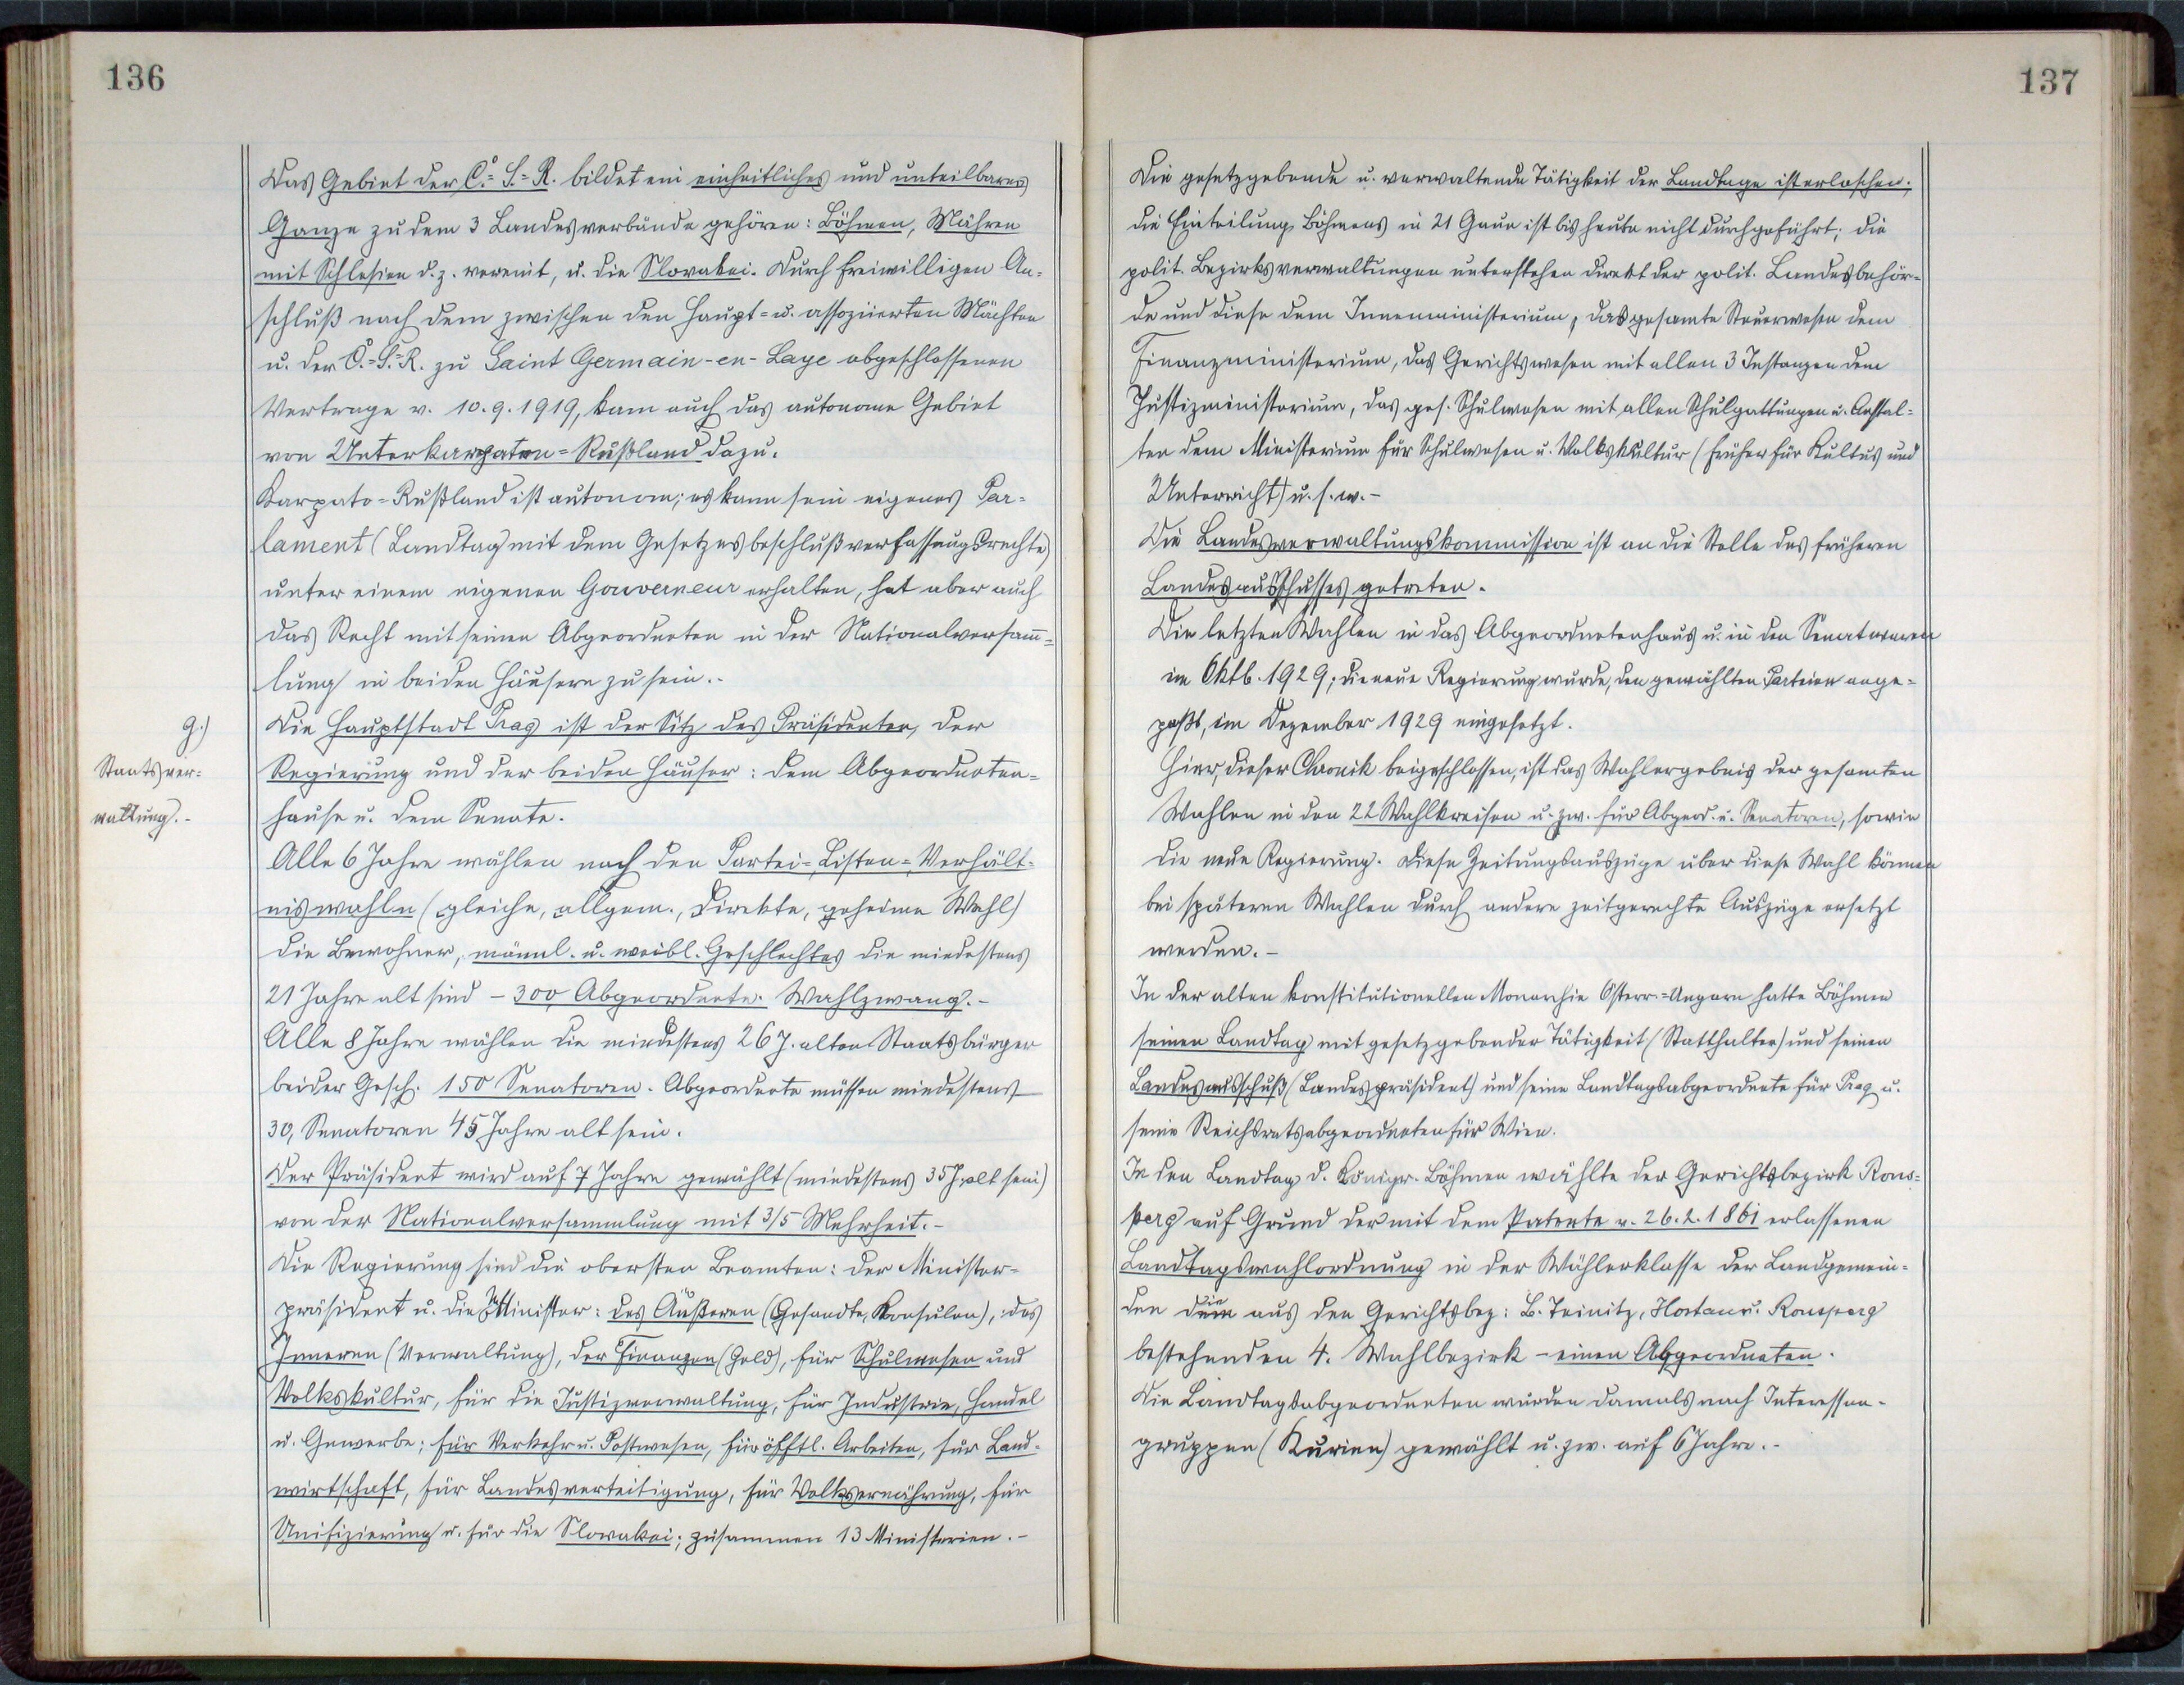 136
Das Gebiet der Č.=S.=R. bildet ein einheitliches und unteilbares
Ganze zu dem 3 Landesverbände gehören: Böhmen, Mähren
mit Schlesien d. z. vereint, u. die Slovakei. Durch freiwilligen An=
schluß nach dem zwischen den Haupt= u. assoziierten Mächten
u. der Č.=S.=R. zu Saint Germain-en-Laye abgeschlossenen
Vertrage v. 10.9.1919, kam auch das autonome Gebiet
von Unterkarpaten=Rußland dazu.
Karpato=Rußland ist autonom; es kann sein eigenes Par=
lament (Landtag mit dem Gesetzesbeschlußverfassungsrechte)
unter einem eigenen Gouverneur erhalten, hat aber auch
das Recht mit seinen Abgeordneten in der Nationalversamm=
lung in beiden Häusern zu sein.-
g.)
Staatsver=
waltung.-
Die Hauptstadt Prag ist der Sitz des Präsidenten, der
Regierung und der beiden Häuser: dem Abgeordneten=
hause u. dem Senate.
Alle 6 Jahre wählen nach den Partei=, Listen=, Verhält=
niswahlen (gleiche, allgem., direkte, geheime Wahl)
die Bewohner, männl. u. weibl. Geschlechtes die mindestens
21 Jahre alt sind - 300 Abgeordnete. Wahlzwang.-
Alle 8 Jahre wählen die mindestens 26 J. alten Staatsbürger
beider Gesch. 150 Senatoren. Abgeordnete müssen mindestens
30, Senatoren 45 Jahre alt sein.
Der Präsident wird auf 7 Jahre gewählt (mindestens 35 J. alt sein)
von der Nationalversammlung mit 3/5 Mehrheit.-
Die Regierung sind die obersten Beamten: der Minister=
präsident u. die Minister: des Äußeren (Gesandte, Konsulen), des
Inneren (Verwaltung), der Finanzen (Geld), für Schulwesen und
Volkskultur, für die Justizverwaltung, für Industrie, Handel
u. Gewerbe; für Verkehr u. Postwesen, für öfftl. Arbeiten, für Land=
wirtschaft, für Landesverteitigung, für Volksernährung, für
Unifizierung u. für die Slowakei; zusammen 13 Ministerien.-
137
Die gesetzgebende u. verwaltende Tätigkeit der Landtage ist erloschen;
die Einteilung Böhmens in 21 Gaue ist bis heute nicht durchgeführt; die
polit. Bezirksverwaltungen unterstehen direkt der polit. Landesbehör=
de und diese dem Innenministerium, das gesamte Steuerwesen dem
Finanzministerium, das Gerichtswesen mit allen 3 Instanzen dem
Justizministerium, das ges. Schulwesen mit allen Schulgattungen u. Anstal=
ten dem Ministerium für Schulwesen u. Volkskultur (früher für Kultus und
Unterricht) u. s. w.-
Die Landesverwaltungskommission ist an die Stelle des früheren
Landesausschusses getreten.
Die letzten Wahlen in das Abgeordnetenhaus u. in den Senat waren
im Oktb. 1929; die neue Regierung wurde, den gewählten Parteien ange=
paßt, im Dezember 1929 eingesetzt.
Hier, dieser Chronik beigeschlossen, ist das Wahlergebnis der gesamten
Wahlen in den 22 Wahlkreisen u. zw. für Abgeord. u. Senatoren, sowie
die neue Regierung. Diese Zeitungsauszüge über diese Wahl können
bei späteren Wahlen durch andere zeitgerechte Auszüge ersetzt
werden.-
In der alten konstitutionellen Monarchie Österr.=Ungarn hatte Böhmen
seinen Landtag mit gesetzgebender Tätigkeit (Statthalter) und seinen
Landesausschuß (Landespräsident) und seine Landtagsabgeordnete für Prag u.
seine Reichsratsabgeordneten für Wien.
In den Landtag d. Königr. Böhmen wählte der Gerichtsbezirk Rons=
perg auf Grund der mit dem Patente v. 26.2.1861 erlassenen
Landtagswahlordnung in der Wählerklasse der Landgemein=
den die aus den Gerichtsbez: B. Teinitz, Hostau u. Ronsperg
bestehenden 4. Wahlbezirk - einen Abgeordneten.
Die Landtagsabgeordneten wurden damals nach Interessen=
gruppen (Kurien) gewählt u. zw. auf 6 Jahre.-